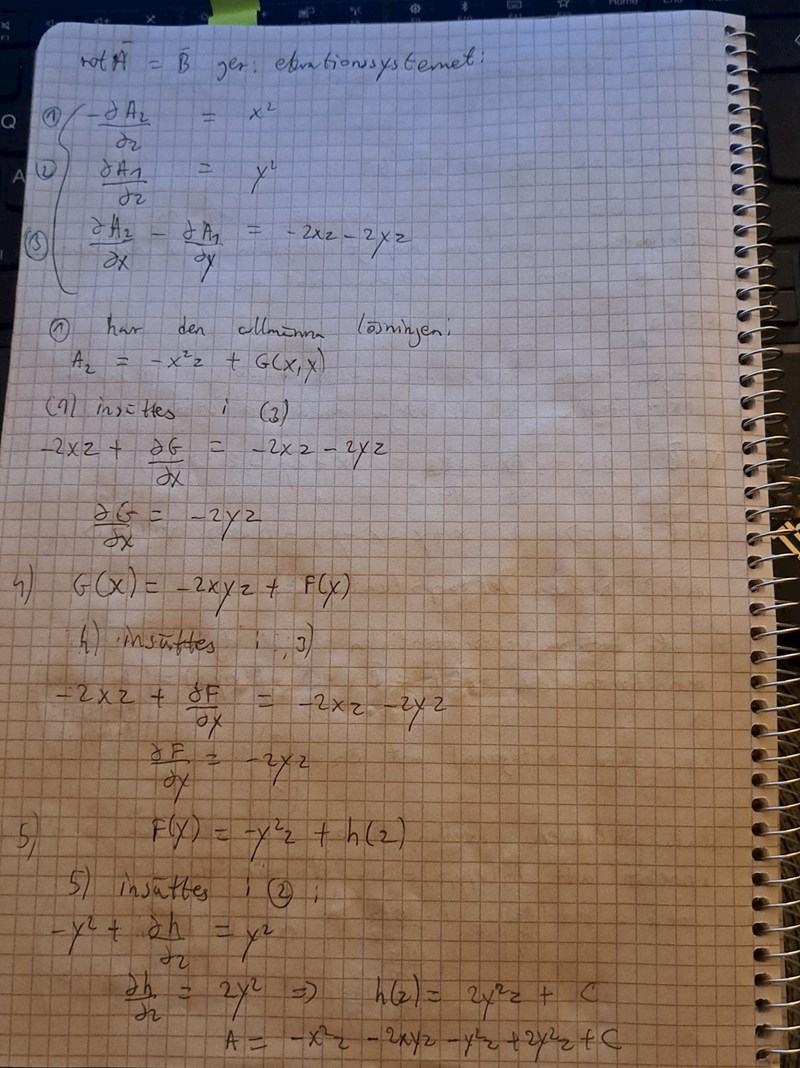 rot Ā = B̄ ger: ekvationssystemet:
① -∂A₂/∂z = x²
② ∂A₁/∂z = y²
③ ∂A₂/∂x - ∂A₁/∂y = -2xz - 2yz
① har den allmänna lösningen:
A₂ = -x²z + G(x,y)
(1) insättes i (3)
-2xz + ∂G/∂x = -2xz - 2yz
∂G/∂x = -2yz
4) G(x) = -2xyz + F(y)
4) insättes i 3)
-2xz + ∂F/∂y = -2xz - 2yz
∂F/∂y = -2yz
5) F(y) = -y²z + h(z)
5) insättes i ② :
-y² + ∂h/∂z = y²
∂h/∂z = 2y² => h(z) = 2y²z + C
A = -x²z - 2xyz - y²z + 2y²z + C
Q
A